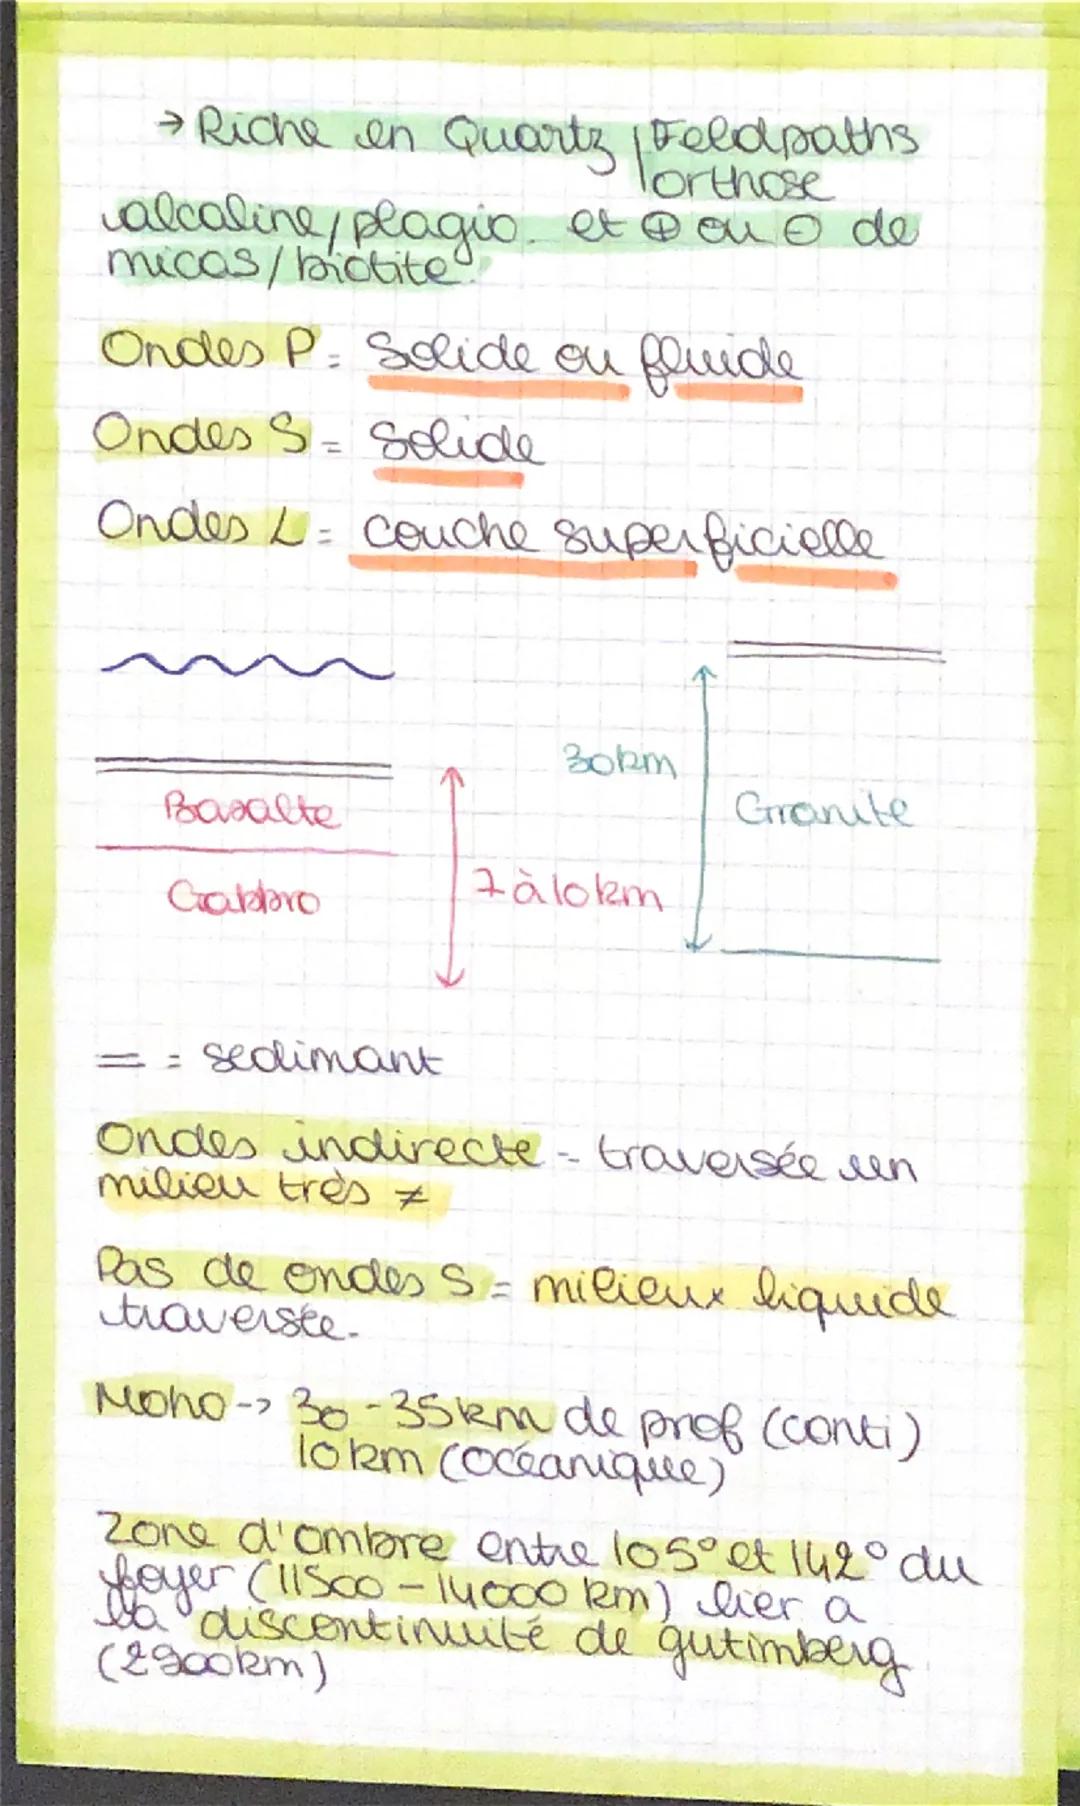 → Riche en Quartz, Feldpaths
orthose
alcaline/plagio. et ⊕ ou ⊖ de
micas/biotite.
Ondes P = Solide ou fluide
Ondes S = Solide
Ondes L = couche superficielle
30km
Basalte
Granite
Gabbro
7 à 10 km
= = sedimant
Ondes indirecte = traversée un
milieu très ≠
Pas de ondes S = milieux liquide
traversée.
Moho -> 30 - 35km de prof (conti)
10 km (océanique)
Zone d'ombre entre 105° et 142° du
foyer (11500 - 14000 km) lier a
la discontinuité de gutimberg
(2900km)